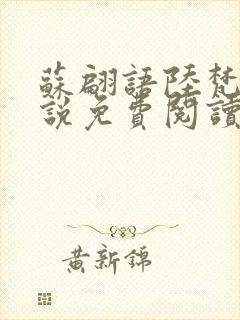 蘇翩語陸梵
說免費閱讀
黃新錦